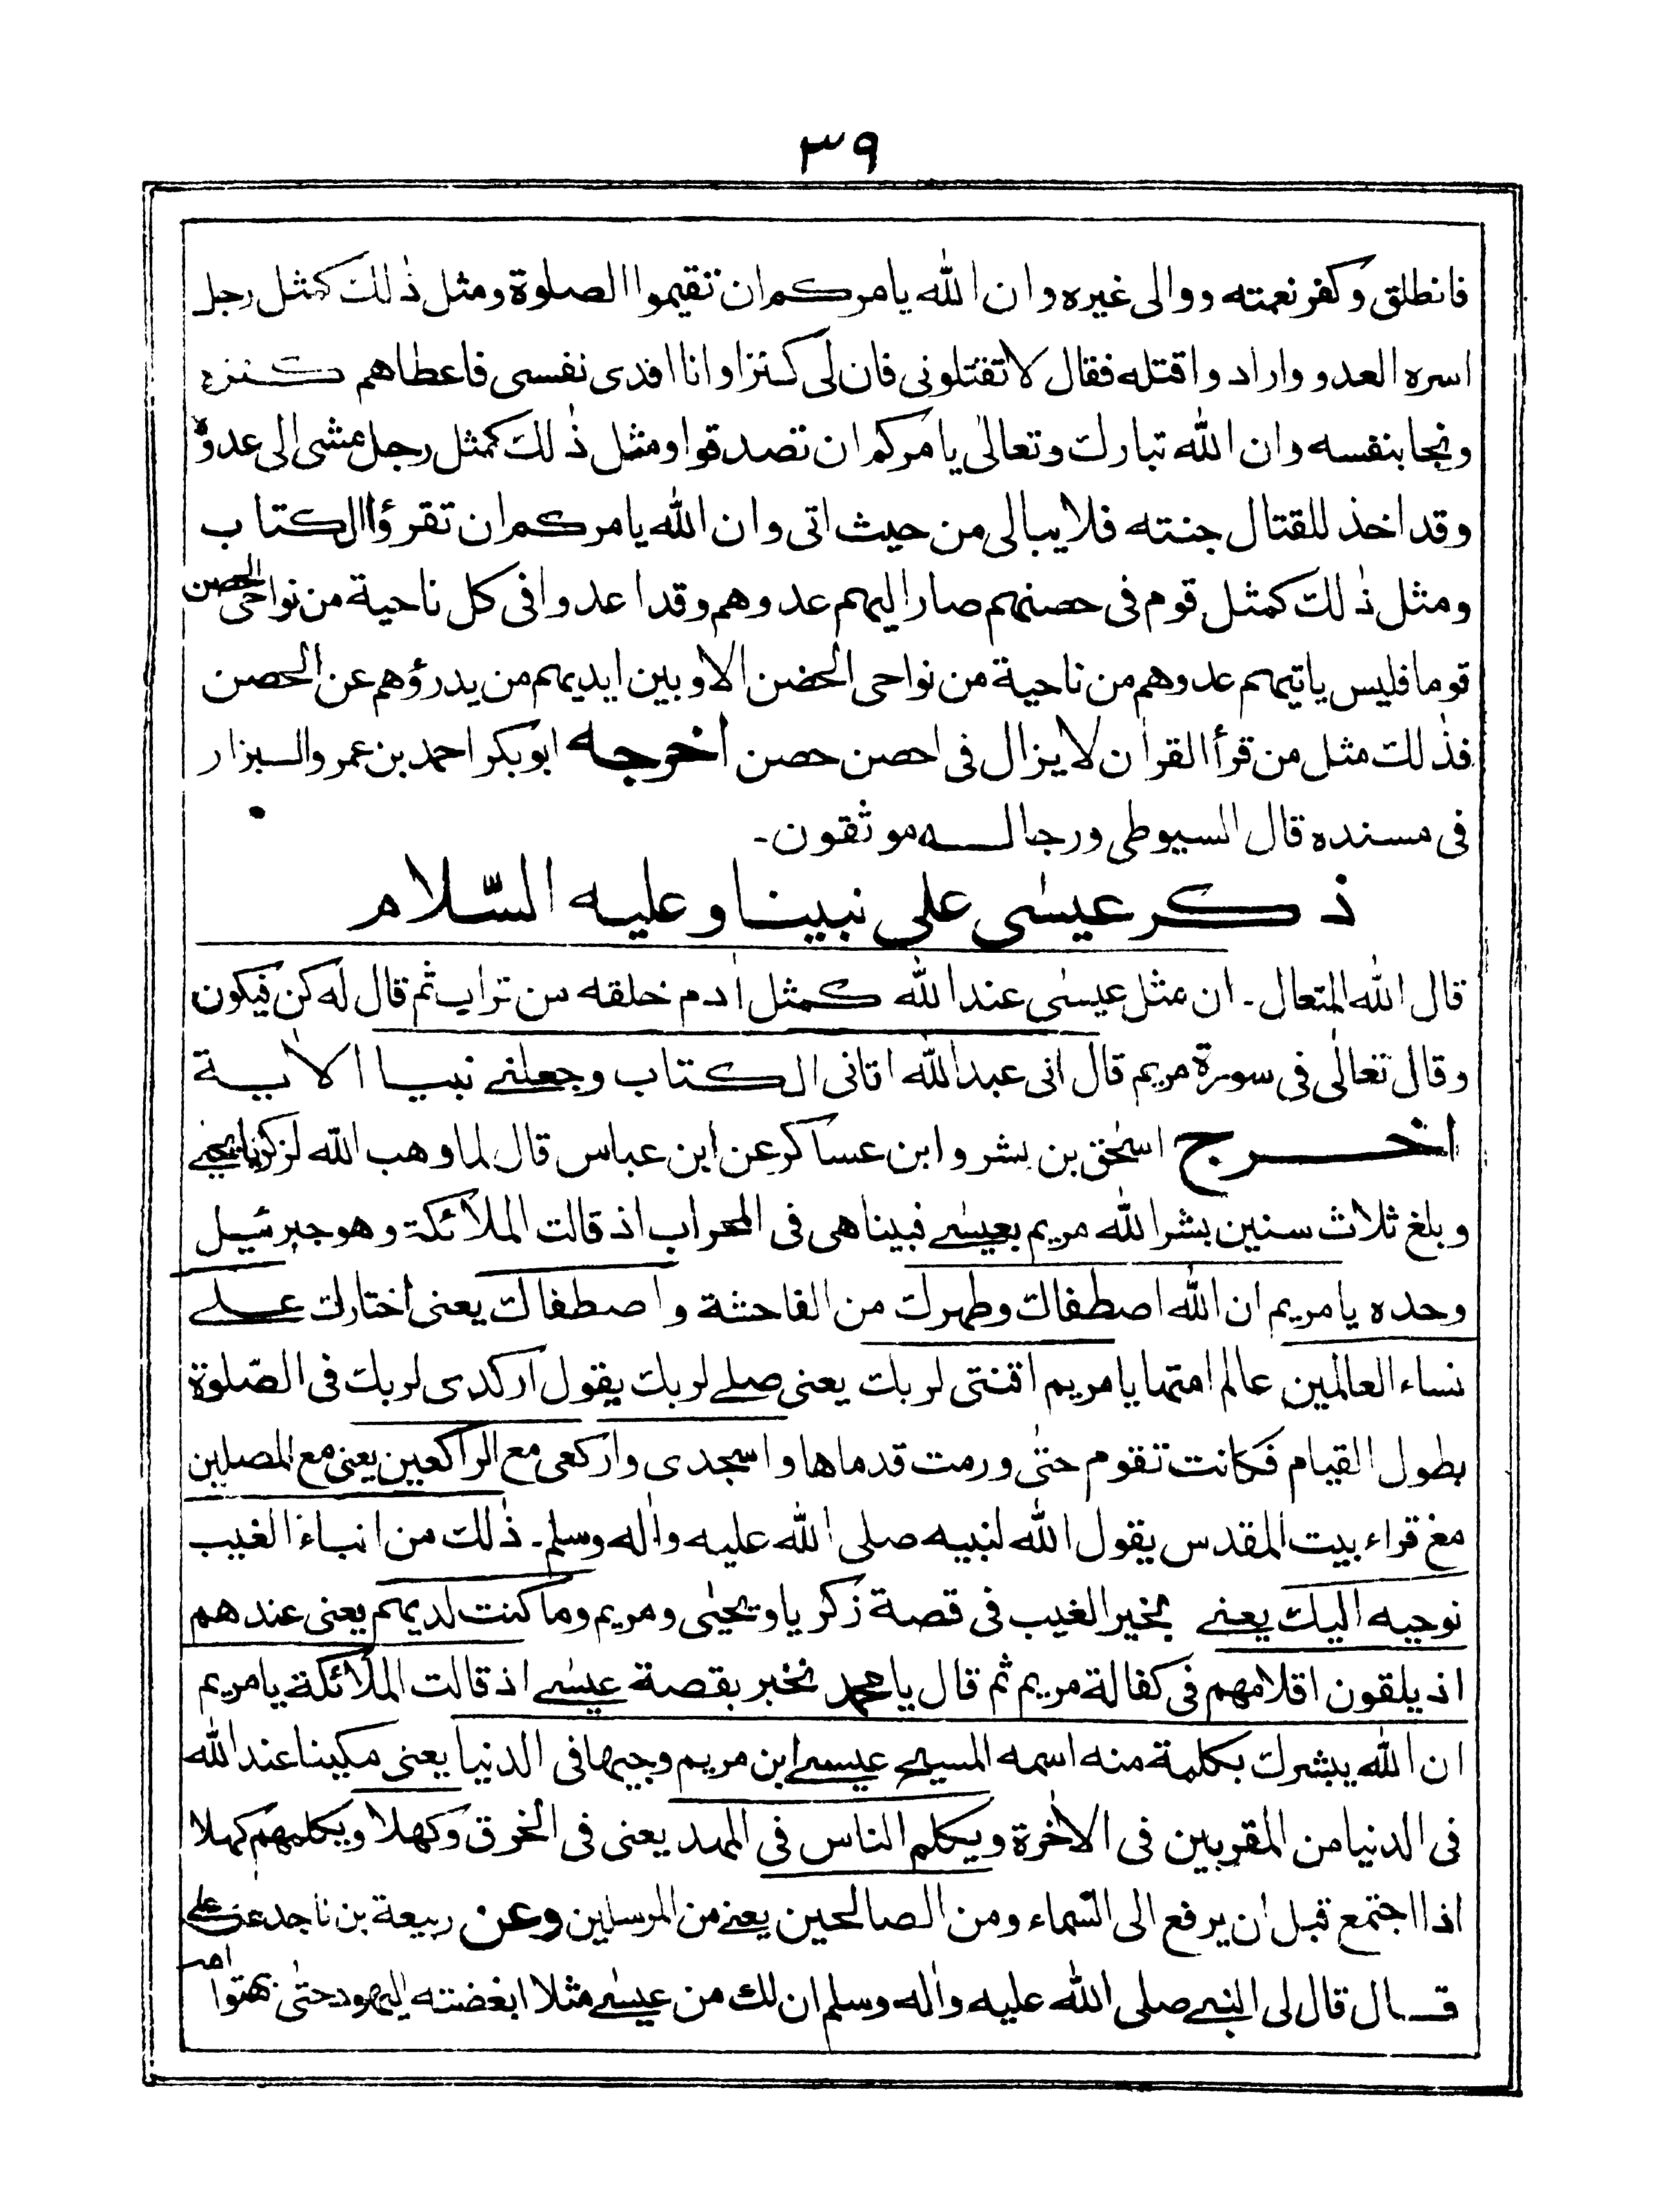 ٣٩
فانطلق وكفر نعمته ووالى غيره وان الله يامركم ان تقيموا الصلوة ومثل ذٰلك كمثل رجل
اسره العدو واراد واقتله فقال لا تقتلونى فان لى كنزا وانا افدى نفسى فاعطاهم كنزه
ونجا بنفسه وان الله تبارك وتعالىٰ يامركم ان تصدقوا ومثل ذٰلك كمثل رجل مشى الى عدوه
وقد اخذ للقتال جنته فلا يبالى من حيث اتى وان الله يامركم ان تقرؤا الكتاب
ومثل ذٰلك كمثل قوم فى حصنهم صار اليهم عدوهم وقد اعدوا فى كل ناحية من نواحى الحصن
قوما فليس ياتيهم عدوهم من ناحية من نواحى الحضن الا وبين ايديهم من يدرؤهم عن الحصن
فذٰلك مثل من قرأ القراٰن لا يزال فى احصن حصن اخرجه ابوبكر احمد بن عمرو البزار
فى مسنده قال السيوطى ورجاله موثقون۔
ذكر عيسٰى على نبينا وعليه السّلام
قال الله المتعال۔ ان مثل عيسٰى عند الله كمثل اٰدم خلقه من تراب ثم قال له كن فيكون
وقال تعالٰى فى سورة مريم قال انى عبد الله اتانى الكتاب وجعلنے نبيا الاٰية
اخرج اسحٰق بن بشر وابن عساكر عن ابن عباس قال لما وهب الله لزكريا يحيٰے
وبلغ ثلاث سنين بشر الله مريم بعيسٰے فبينا هى فى المحراب اذ قالت الملائكة وهو جبرئيل
وحده يا مريم ان الله اصطفاك وطهرك من الفاحشة واصطفاك يعنى اختارك علے
نساء العالمين عالم امتها يا مريم اقنتى لربك يعنى صلے لربك يقول اركدى لربك فى الصّلوة
بطول القيام فكانت تقوم حتٰى ورمت قدماها واسجدى واركعى مع الراكعين يعنى مع المصلين
مغ قراء بيت المقدس يقول الله لنبيه صلى الله عليه واٰله وسلم۔ ذٰلك من انباء الغيب
نوحيه اليك يعنے بخير الغيب فى قصة زكريا ويحيٰى ومريم وما كنت لديهم يعنى عندهم
اذ يلقون اقلامهم فى كفالة مريم ثم قال يا محمد نخبر بقصة عيسٰے اذ قالت الملائكة يا مريم
ان الله يبشرك بكلمة منه اسمه المسيح عيسٰے ابن مريم وجيها فى الدنيا يعنى مكينا عند الله
فى الدنيا من المقربين فى الاٰخرة ويكلم الناس فى المهد يعنى فى الخرق وكهلا ويكلمهم كهلا
اذا اجتمع قبل ان يرفع الى السّماء ومن الصالحين يعنے من المرسلين وعن ربيعة بن ناجد عن علے
قال قال لى النبے صلى الله عليه واٰله وسلم ان لك من عيسٰے مثلا ابغضته اليهود حتٰى بهتوا امه